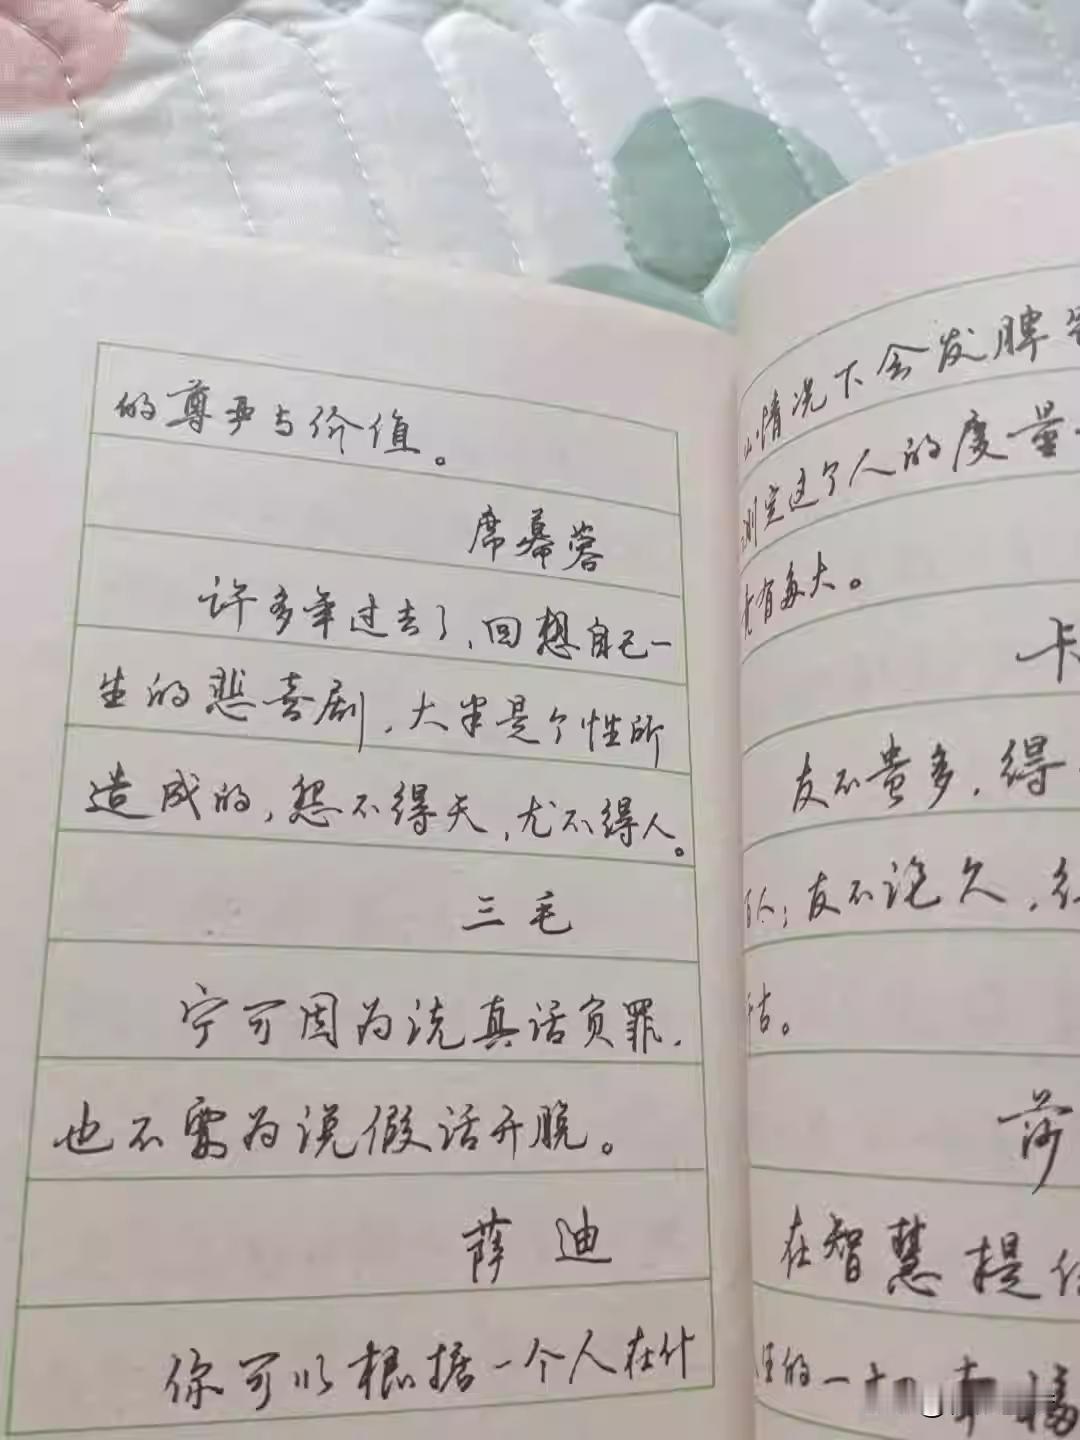 的尊严与价值。
席慕蓉
许多年过去了,回想自己一
生的悲喜剧,大半是个性所
造成的,怨不得天,尤不得人。
三毛
宁可因为说真话负罪,
也不要为说假话开脱。
萨迪
你可以根据一个人在什
情况下会发脾
测定这个人的度量
竟有多大。
卡
友不贵多,得
百人;友不论久,
千古。
莎
在智慧提
生的一切幸福